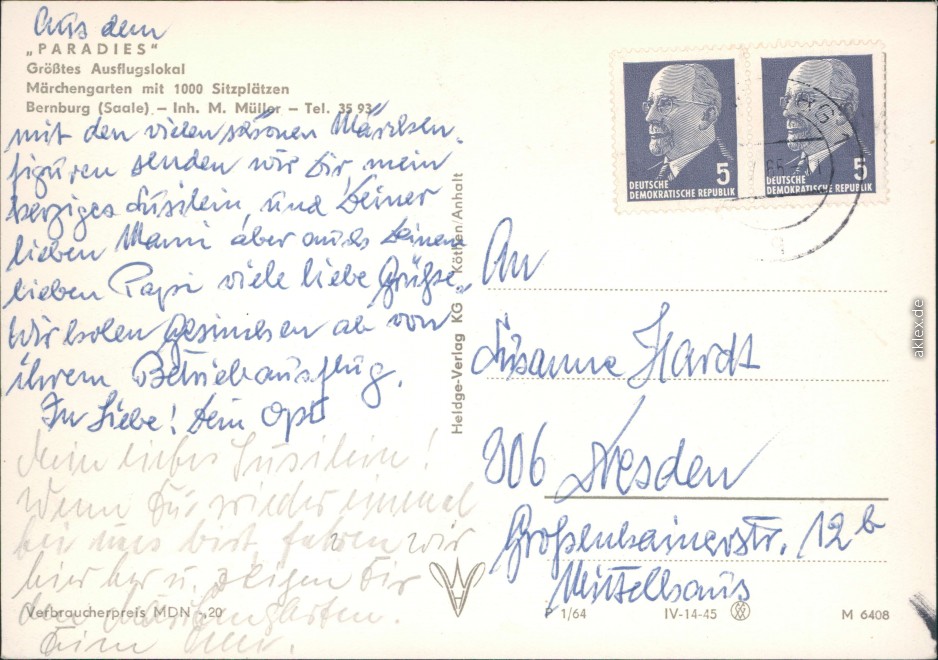 Aus dem
„PARADIES"
Größtes Ausflugslokal
Märchengarten mit 1000 Sitzplätzen
Bernburg (Saale) – Inh. M. Müller – Tel. 35 93
mit den vielen schönen Märchen-
figuren senden wir Dir, mein
herziges Susilein, und Deiner
lieben Mami aber auch Deinem
lieben Papi viele liebe Grüße.
Wir holen ab von
ihrem Betriebsausflug.
In Liebe! Dein Opi
Mein liebes Susilein!
Wenn Du wieder einmal
bei uns bist, fahren wir
hier her u. zeigen Dir
den Märchengarten.
Deine
Verbraucherpreis MDN -,20
Heldge-Verlag KG Köthen/Anhalt
5
DEUTSCHE
DEMOKRATISCHE REPUBLIK
5
DEUTSCHE
DEMOKRATISCHE REPUBLIK
An
Susanne Hardt
806 Dresden
Großenhainerstr. 12b
Mittelhaus
P 1/64
IV-14-45
M 6408
aklex.de